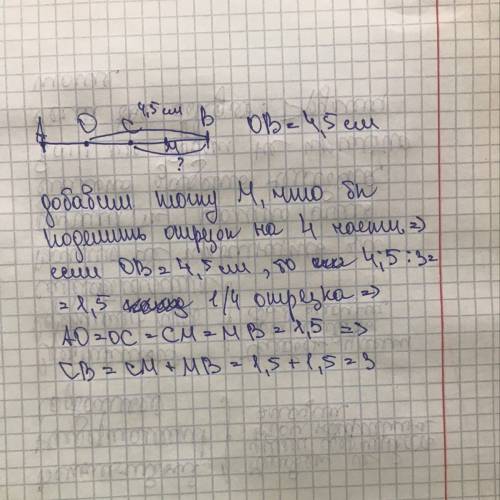 A O C 4,5 см M B OB = 4,5 см
?
добавим точку M, что бы
поделить отрезок на 4 части. =>
если OB = 4,5 см, то 4,5 : 3 =
= 1,5 1/4 отрезка =>
AO = OC = CM = MB = 1,5 =>
CB = CM + MB = 1,5 + 1,5 = 3